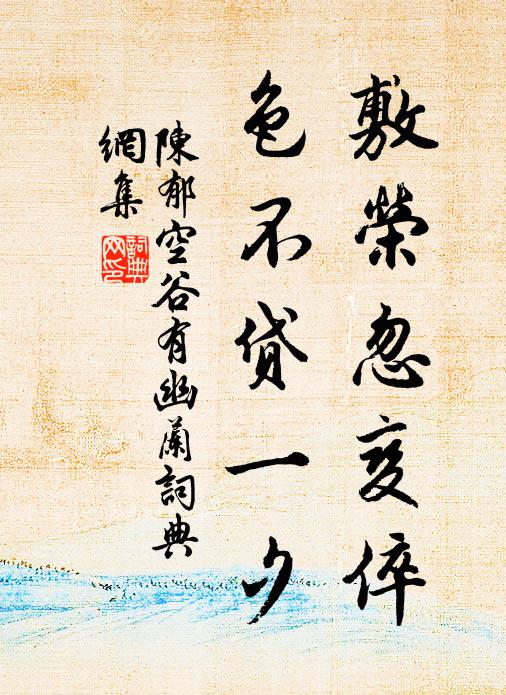 敷榮忽变倅
色不貸一夕
陳郁空谷有幽蘭詞典
網集
詞典
网印